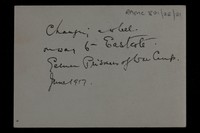 Changing a wheel.
on way to Eastcote.
German Prisoners of War Camp.
June 1917.